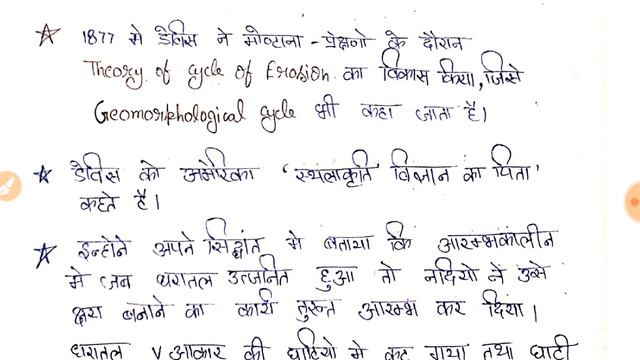 ☆ 1877 मे डेविस ने मोन्टाना - प्रेक्षणो के दौरान
Theory of Cycle of Erosion का विकास किया, जिसे
Geomorphological Cycle भी कहा जाता है।
☆ डेविस को अमेरिका 'स्थलाकृति विज्ञान का पिता'
कहते है।
☆ इन्होने अपने सिद्धांत मे बताया कि आरम्भकालीन
मे जब धरातल उत्जनित हुआ तो नदियो नें उसे
क्षरा बनाने का कार्य तुरन्त आरम्भ कर दिया।
धरातल V आकार की घाटियो मे कट गया तथा घाटी